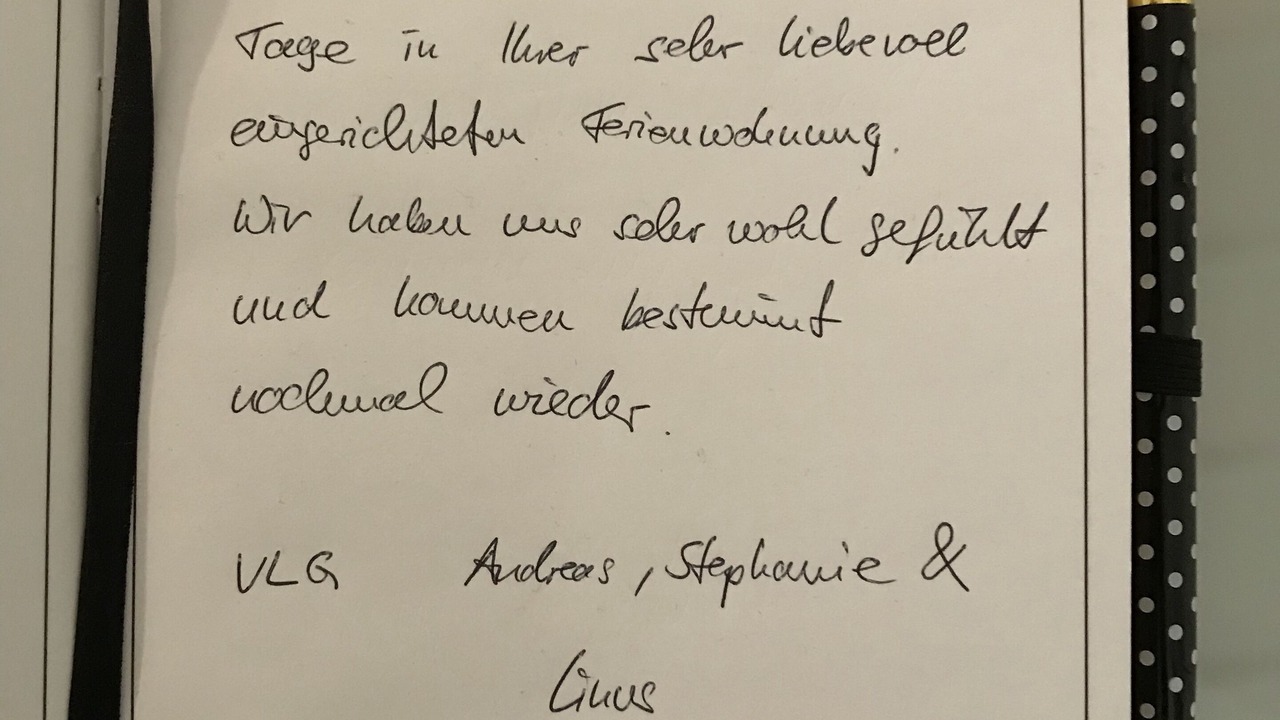 Tage in Ihrer sehr liebevoll
eingerichteten Ferienwohnung.
Wir haben uns sehr wohl gefühlt
und kommen bestimmt
nochmal wieder.
VLG Andreas, Stephanie &
Linus